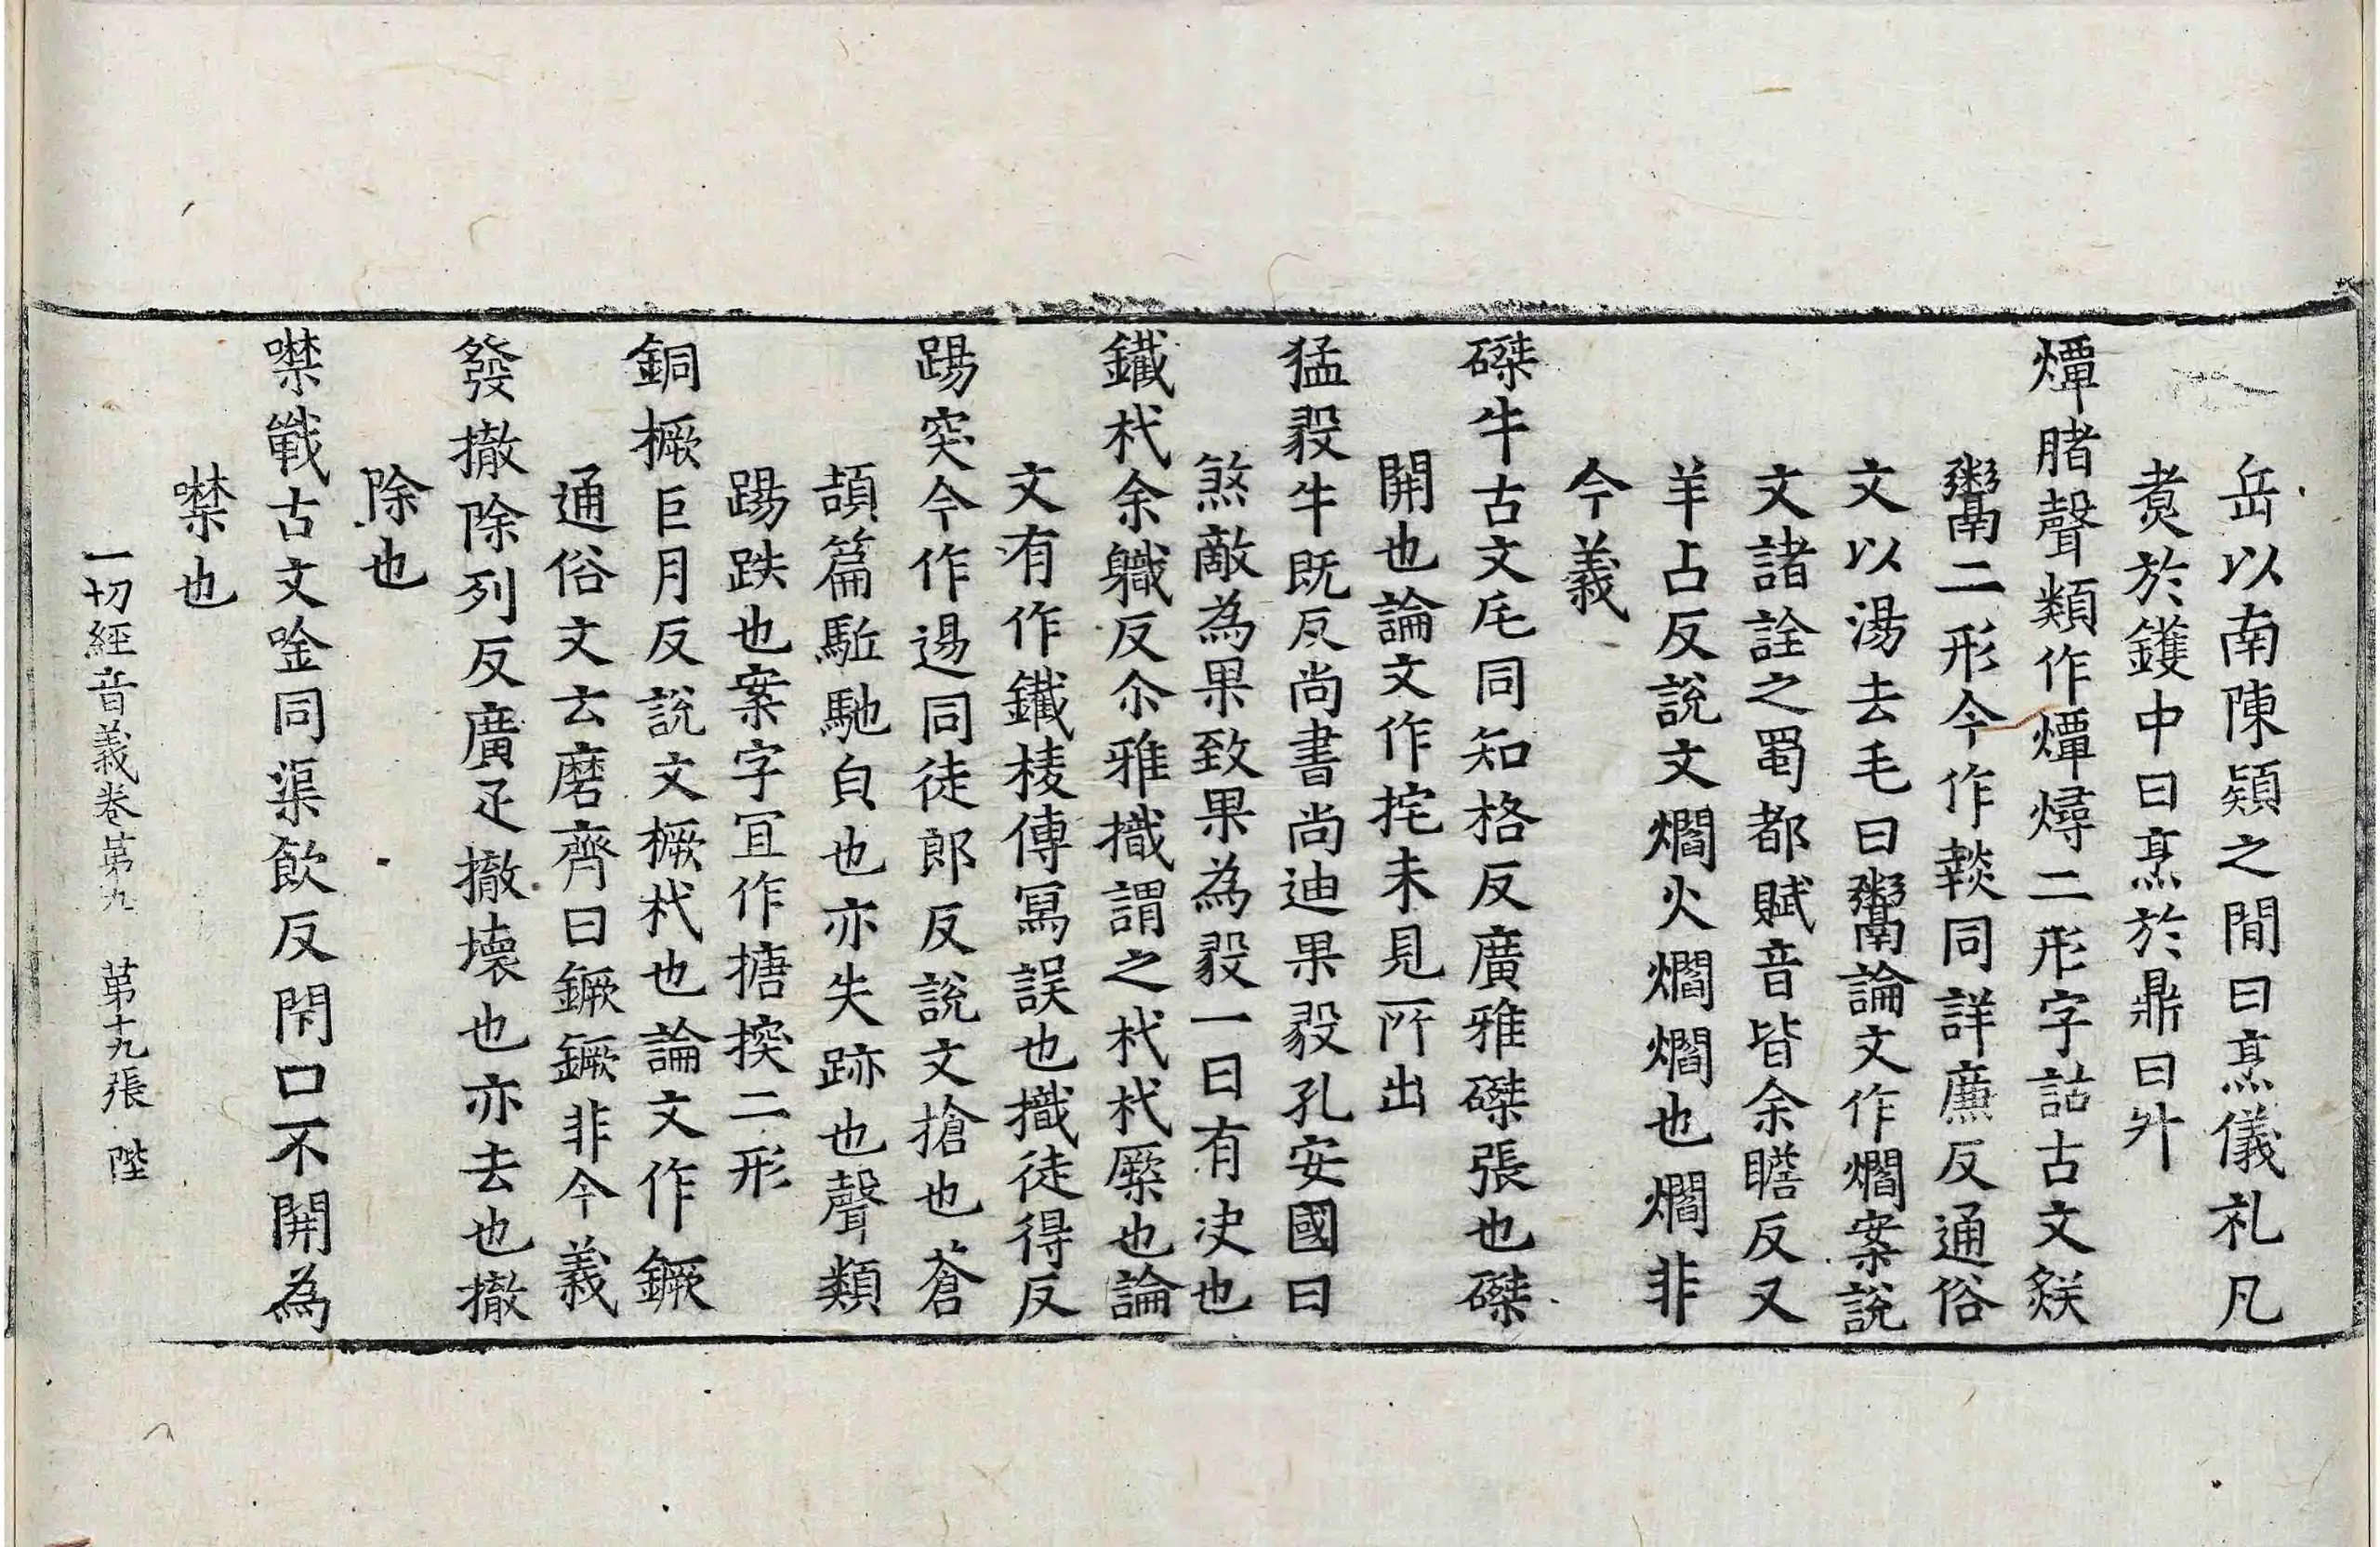 岳以南陳潁之間曰烹儀礼凡
煑於鑊中曰烹於鼎曰升
燂腤聲類作燂燖二形字詁古文㷄
鬻二形今作𤎖同詳廉反通俗
文以湯去毛曰鬻論文作爓案說
文諸詮之蜀都賦音皆余瞻反又
羊占反說文爓火爓爓也爓非
今義
磔牛古文厇同知格反廣雅磔張也磔
開也論文作挓未見所出
猛毅牛既反尚書尚迪果毅孔安國曰
煞敵為果致果為毅一曰有决也
鐵杙余軄反尒雅樴謂之杙杙橜也論
文有作鐵棱傳冩誤也樴徒得反
踼突今作逿同徒郎反說文搶也蒼
頡篇駈馳皃也亦失跡也聲類
踼跌也案字冝作搪揬二形
銅橛巨月反說文橛杙也論文作鐝
通俗文云磨齊曰鐝鐝非今義
發撤除列反廣疋撤壊也亦去也撤
除也
噤戰古文唫同渠飲反閇口不開為
噤也
一切經音義卷第九 第十九張 陛